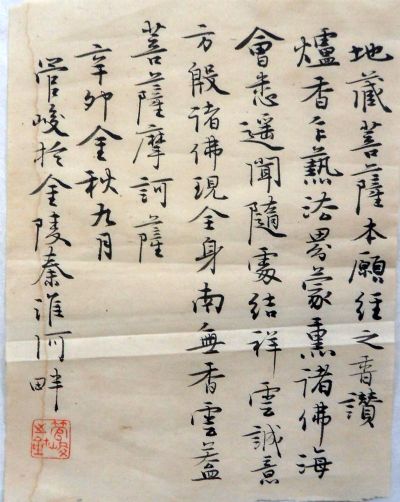 地藏菩薩本願經之香讚
爐香乍爇法界蒙熏諸佛海
會悉遥聞隨處結祥雲誠意
方殷諸佛現全身南無香雲蓋
菩薩摩訶薩
辛卯金秋九月
管峻於金陵秦淮河畔
管峻